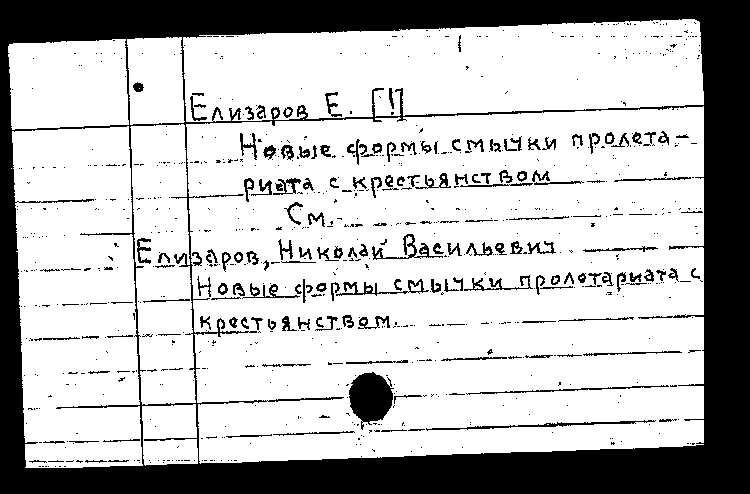 Елизаров Е. [!]
Новые формы смычки пролета-
риата с крестьянством
См.
Елизаров, Николай Васильевич
Новые формы смычки пролетариата с
крестьянством.